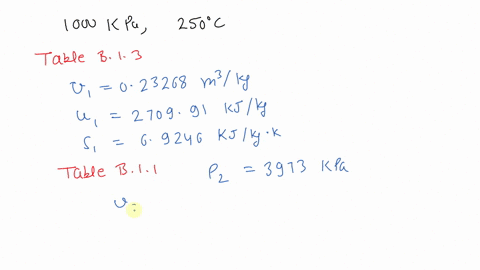 1000 KPa, 250°C
Table B.1.3
v₁ = 0.23268 m³/kg
u₁ = 2709.91 KJ/kg
s₁ = 6.9246 KJ/kg·k
Table B.1.1 P₂ = 3973 KPa
v =